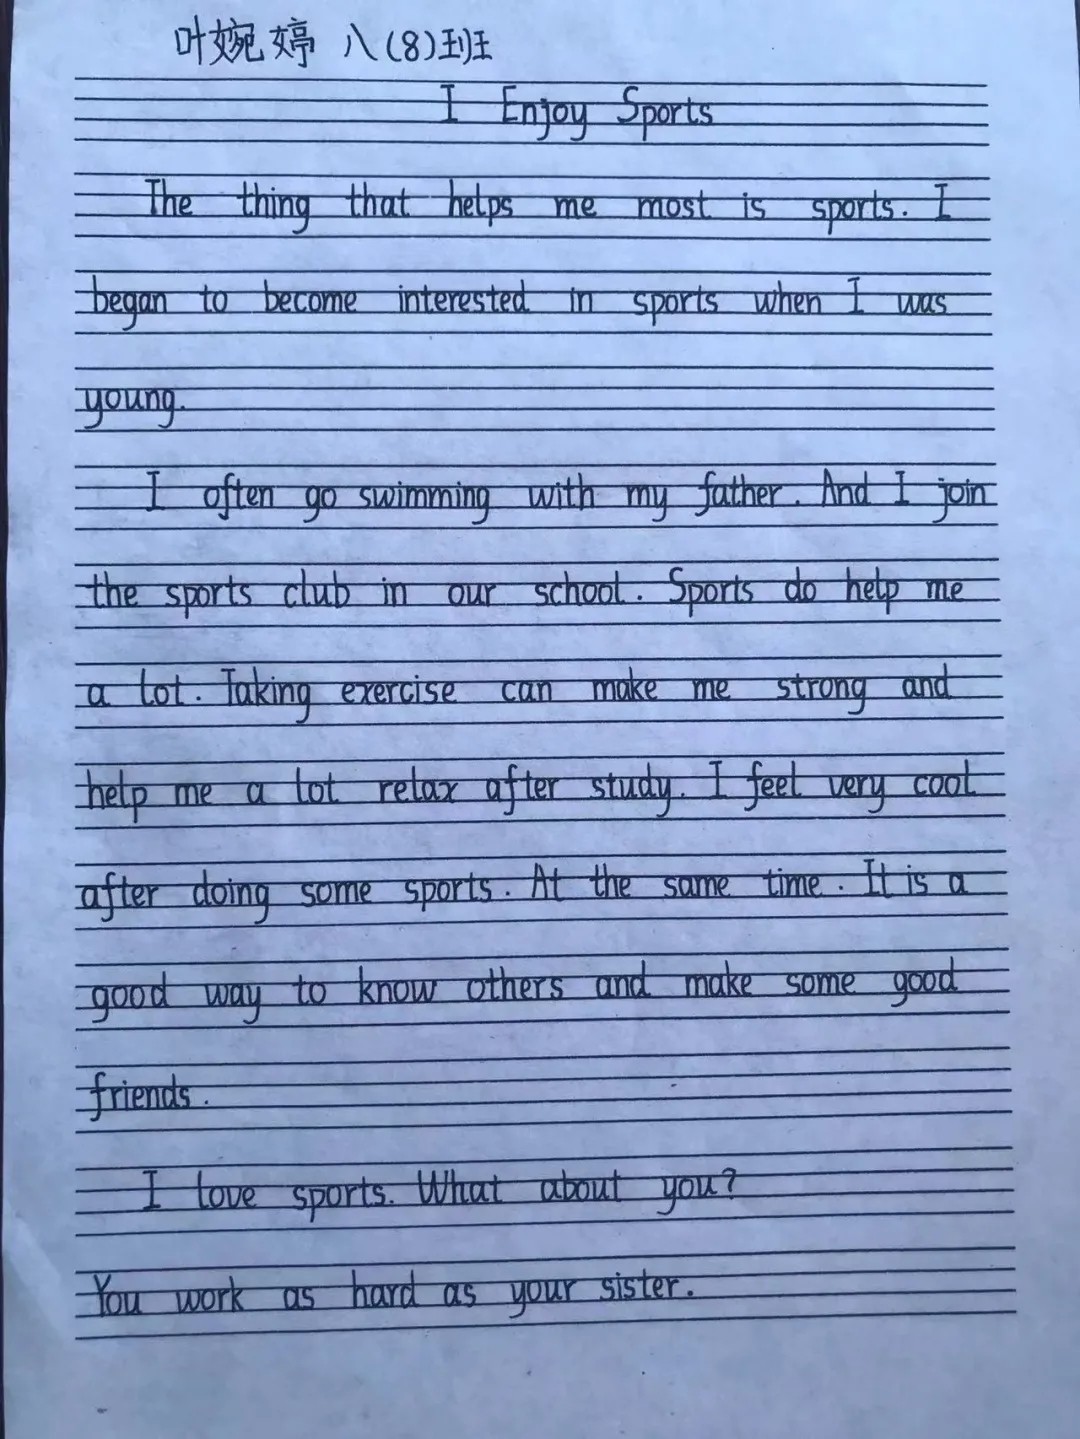 叶婉婷 八(8)班
I Enjoy Sports
The thing that helps me most is sports. I
began to become interested in sports when I was
young.
I often go swimming with my father. And I join
the sports club in our school. Sports do help me
a lot. Taking exercise can make me strong and
help me a lot relax after study. I feel very cool
after doing some sports. At the same time. It is a
good way to know others and make some good
friends.
I love sports. What about you?
You work as hard as your sister.